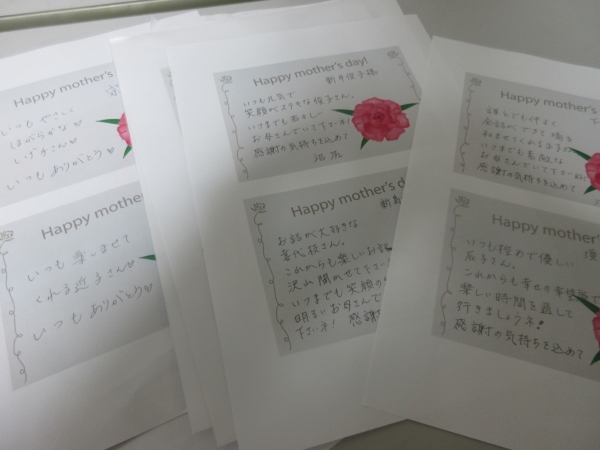 Happy mother's
いつも やさしく
ほがらかな♡
しげ子さん♡
いつも ありがとう♡
Happy mother
いつも 楽しませて
くれる 近子さん♡
いつも ありがとう♡
Happy mother's day!
いつも元気で
笑顔がステキな 俊子さん。
いつまでも若々しい
お母さんでいて下さいネ!
感謝の気持ちを込めて
Happy mother's d
お話が大好きな
喜代枝さん。
これからも楽しいお話
沢山聞かせて下さい
いつまでも笑顔の
明るいお母さんで
下さいネ! 感謝
Happy mother's
誰とでも仲よく
会話ができて 場を
和ませてくれる
いつまでも素敵な
お母さんでいて下さいネ!
感謝の気持ちを込めて
Happy mother's
いつも控め で優しい
辰子さん。
これからも 幸せの
楽しい時間を過して
行きましょうネ!
感謝の気持ちを込めて